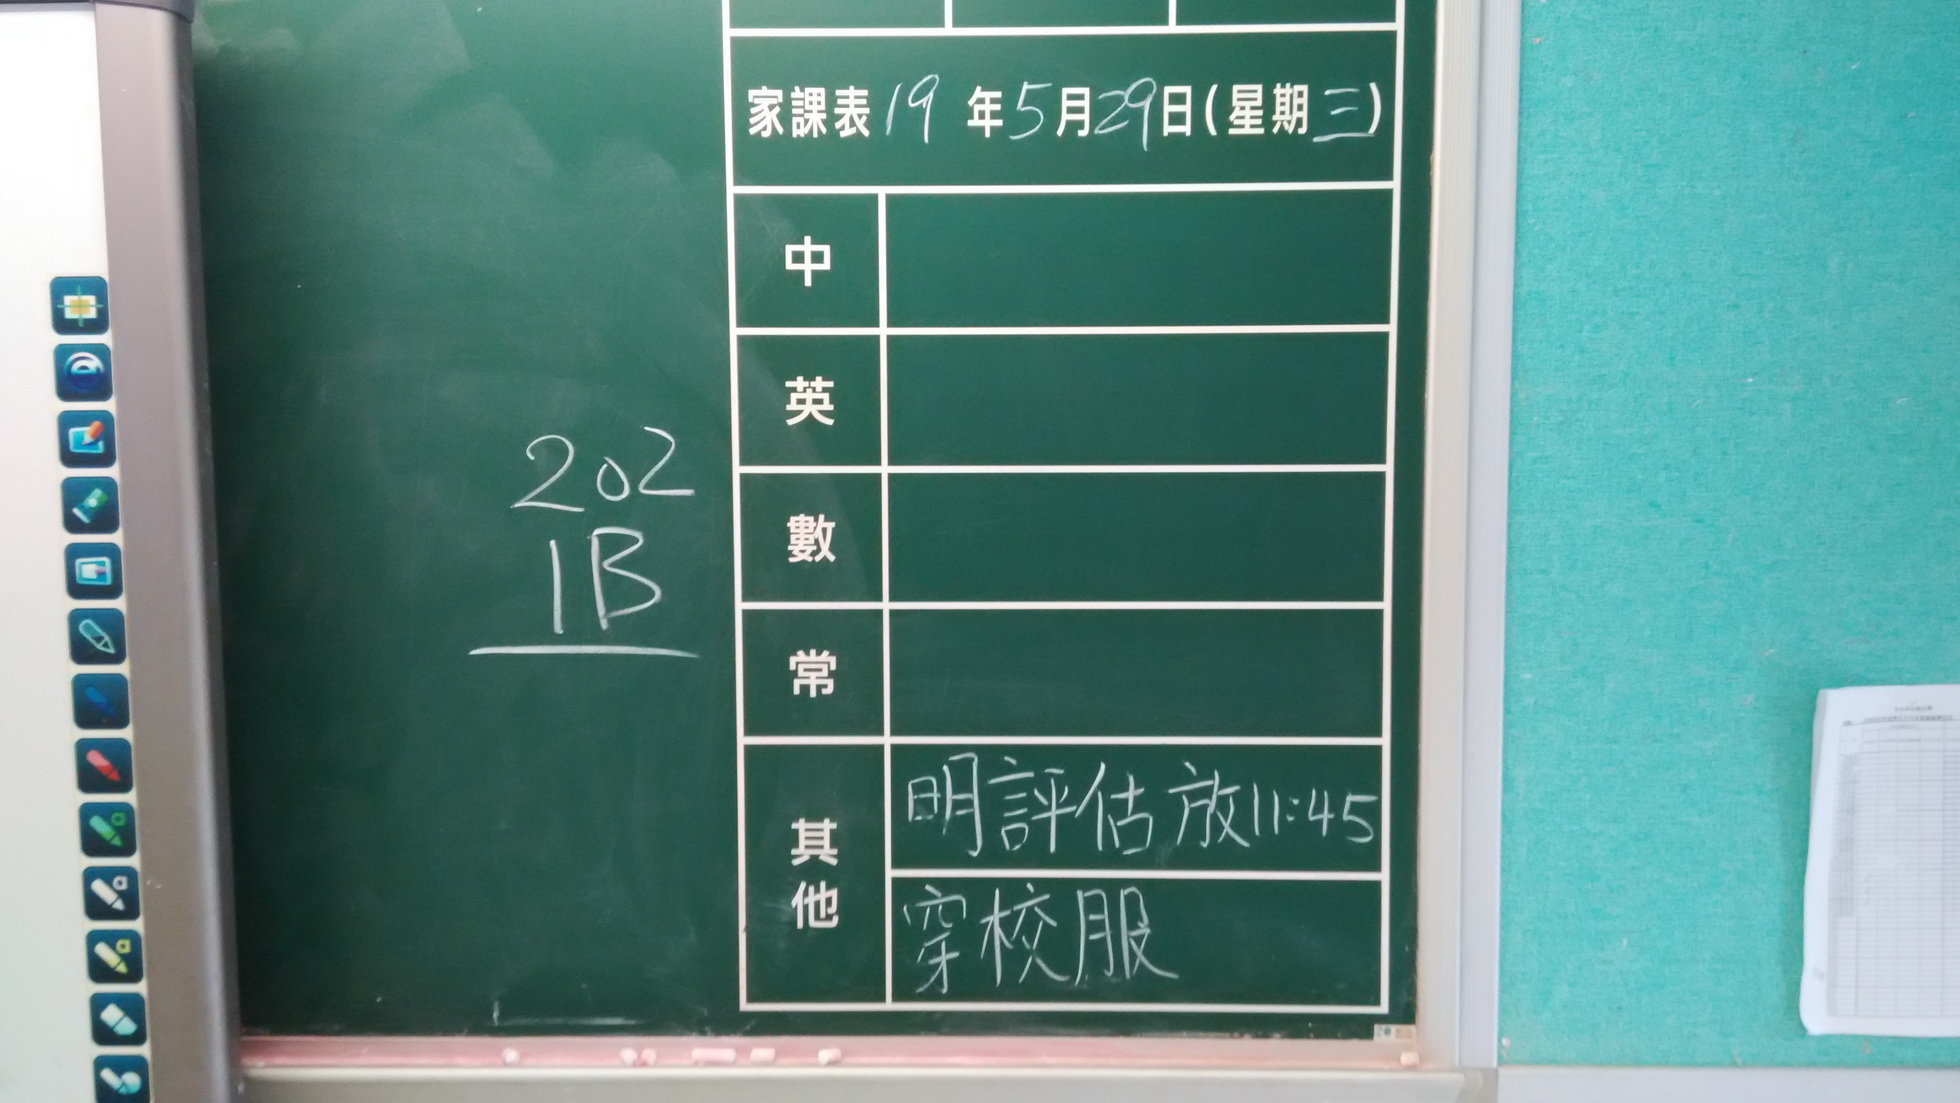 202
1B
家課表19年5月29日(星期三)
中
英
數
常
其他
明評估放11:45
穿校服